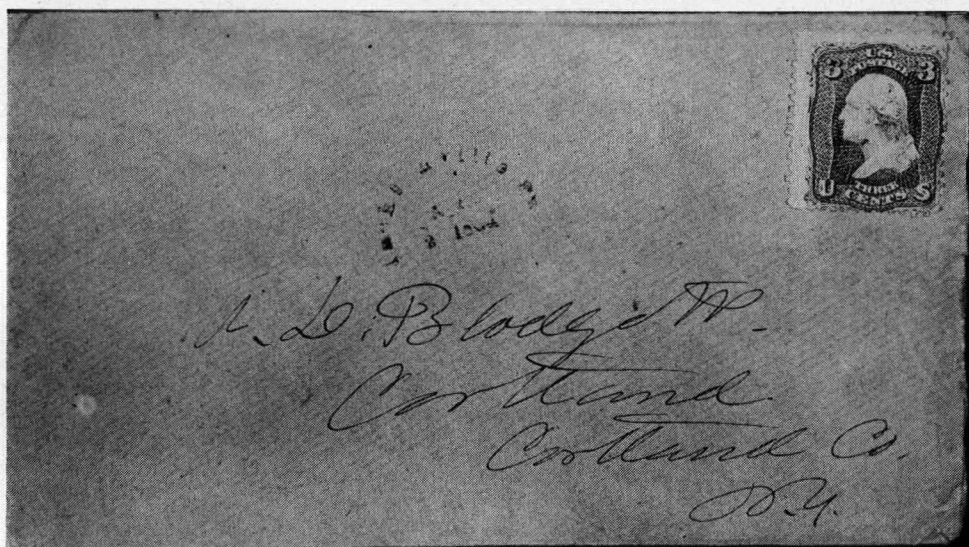 U.S.
POSTAGE
3 3
THREE
U CENTS S
L. D. Blodgett.
Cortland.
Cortland Co.
N.Y.